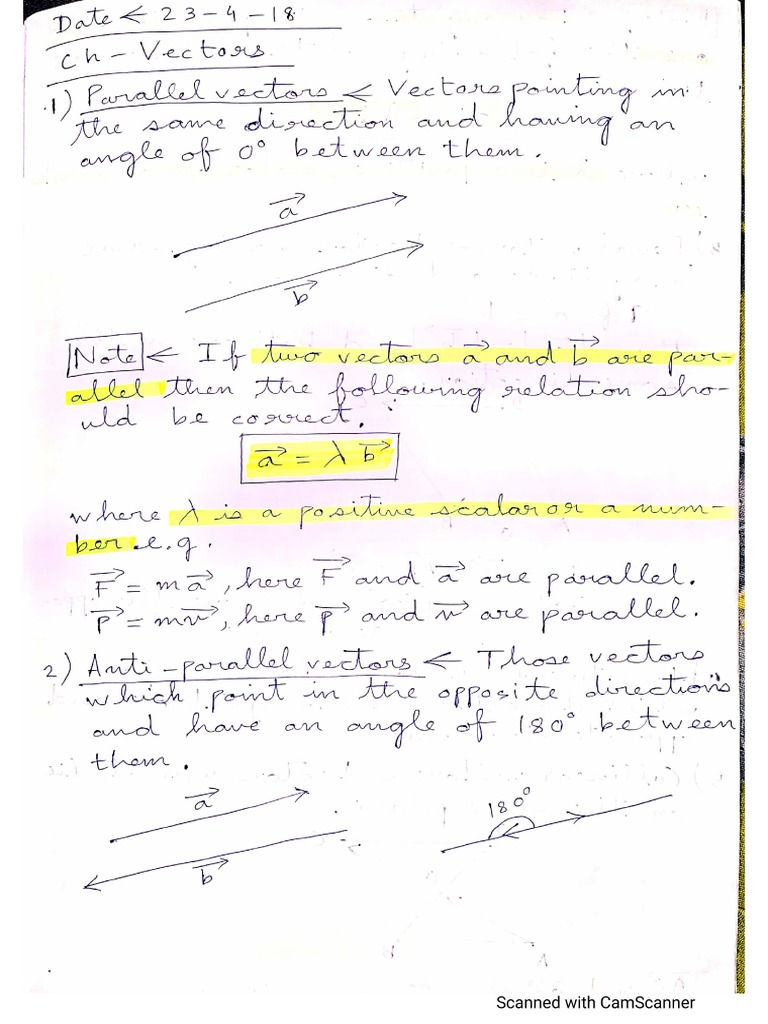 Date < 23-4-18
Ch - Vectors
1) Parallel vectors < Vectors pointing in
the same direction and having an
angle of 0° between them.
a⃗
b⃗
Note < If two vectors a⃗ and b⃗ are par-
allel then the following relation sho-
uld be correct.
a⃗ = λ b⃗
where λ is a positive scalar or a num-
ber e.g.
F⃗ = m a⃗, here F⃗ and a⃗ are parallel.
P⃗ = m v⃗, here P⃗ and v⃗ are parallel.
2) Anti-parallel vectors < Those vectors
which point in the opposite directions
and have an angle of 180° between
them.
a⃗
180°
b⃗
Scanned with CamScanner